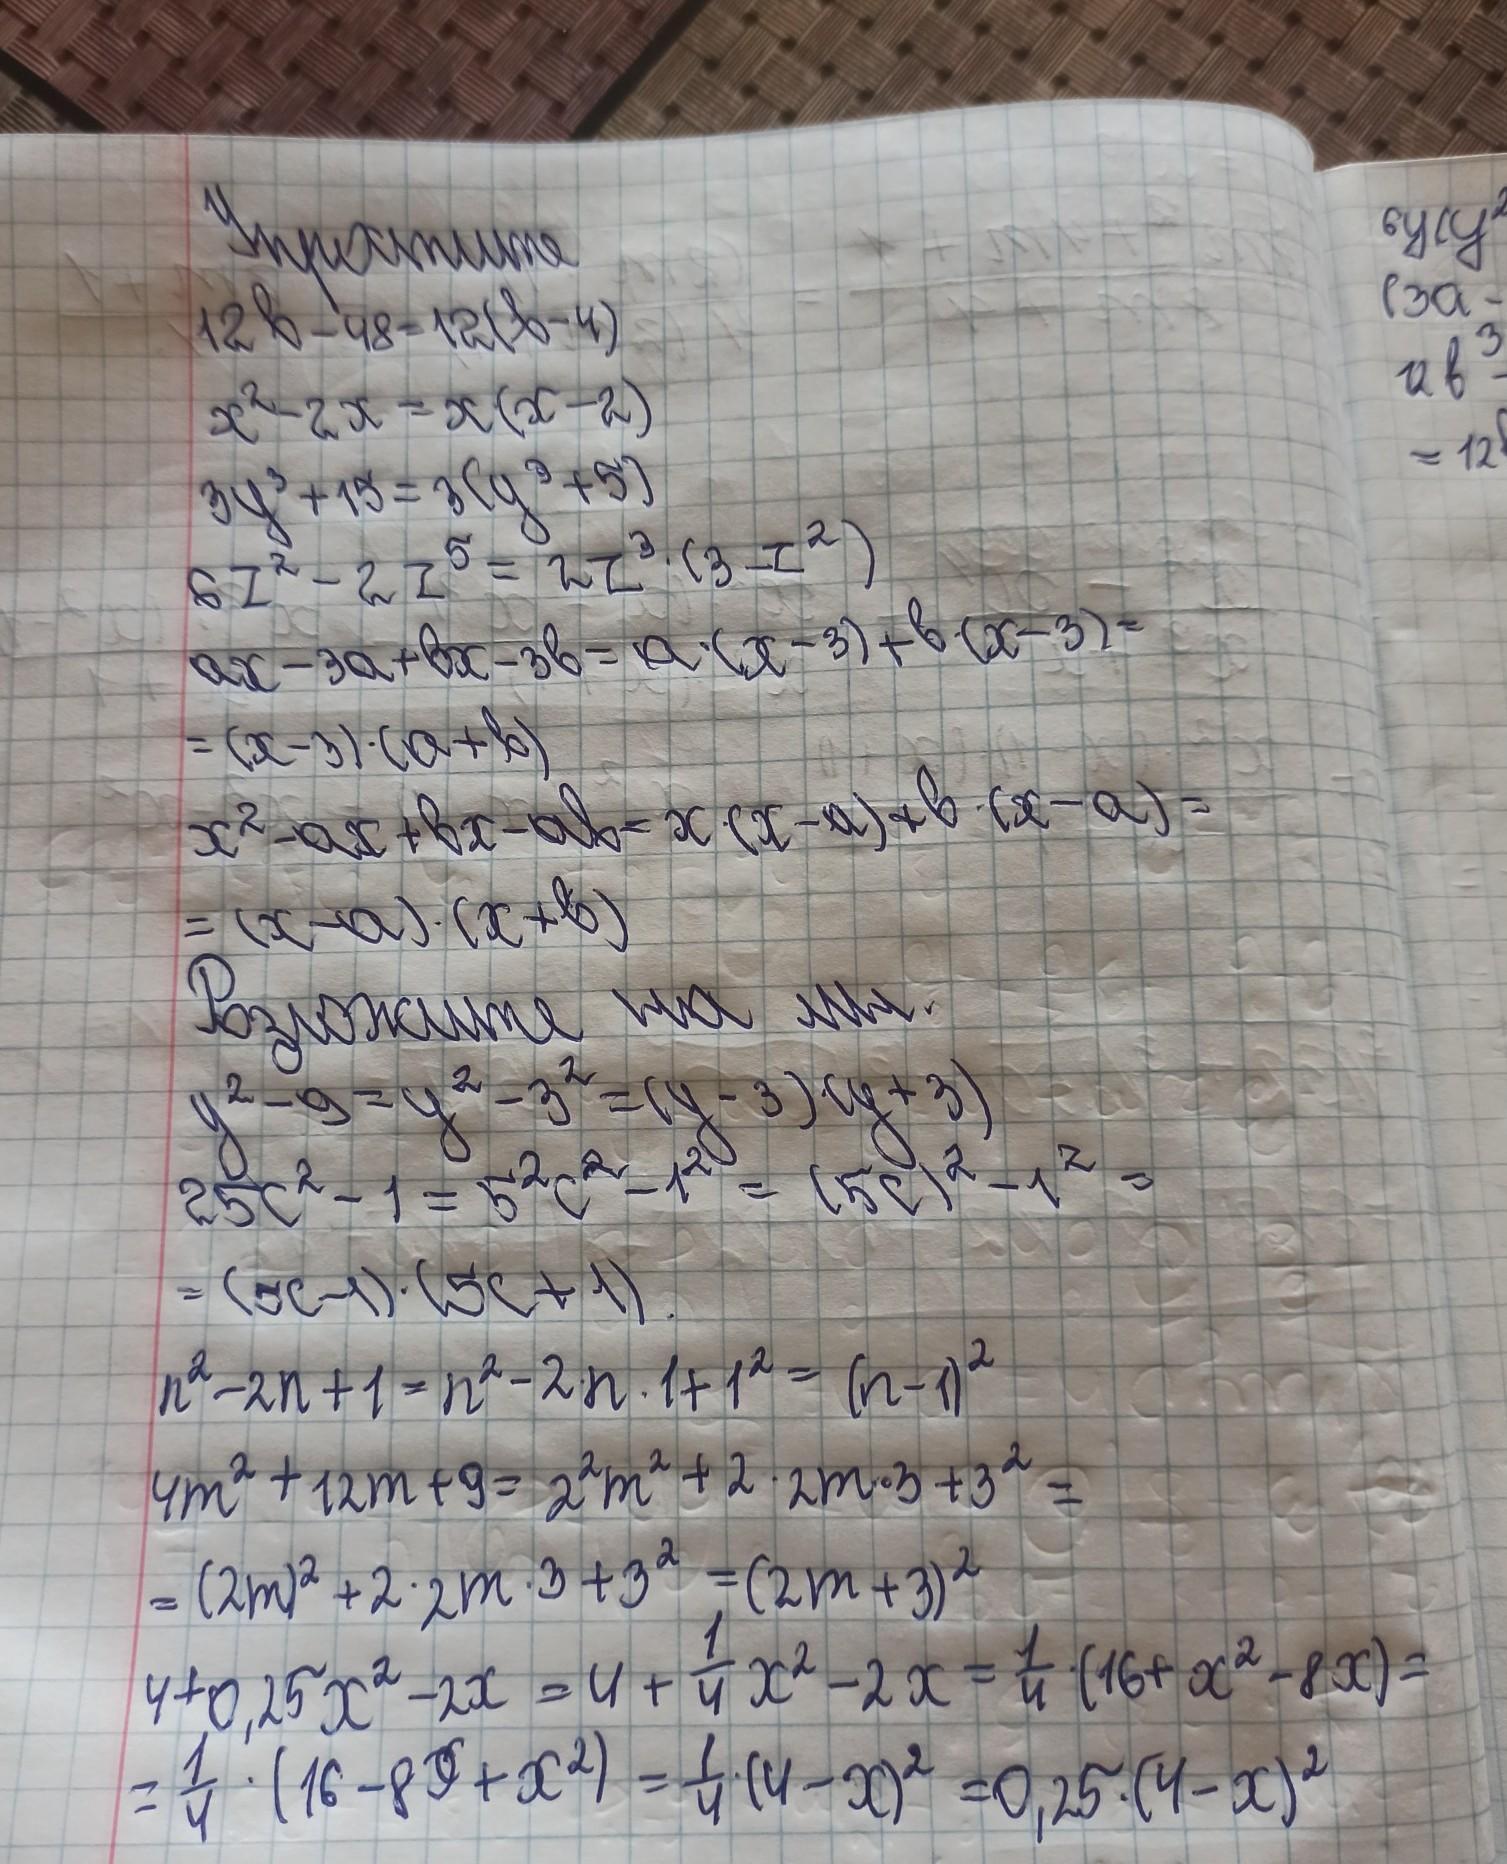 Упростите
12b-48=12(b-4)
x²-2x=x(x-2)
3y³+15=3(y³+5)
6z²-2z⁵=2z³·(3-z²)
ax-3a+bx-3b=a·(x-3)+b·(x-3)=
=(x-3)·(a+b)
x²-ax+bx-ab=x·(x-a)+b·(x-a)=
=(x-a)·(x+b)
Розложите на мн.
y²-9=y²-3²=(y-3)·(y+3)
25c²-1=5²c²-1²=(5c)²-1²=
=(5c-1)·(5c+1).
n²-2n+1=n²-2·n·1+1²=(n-1)²
4m²+12m+9=2²m²+2·2m·3+3²=
=(2m)²+2·2m·3+3²=(2m+3)²
4+0,25x²-2x=4+1/4x²-2x=1/4·(16+x²-8x)=
=1/4·(16-8x+x²)=1/4·(4-x)²=0,25·(4-x)²
6y(y²
(3a-
12b³-
=12b